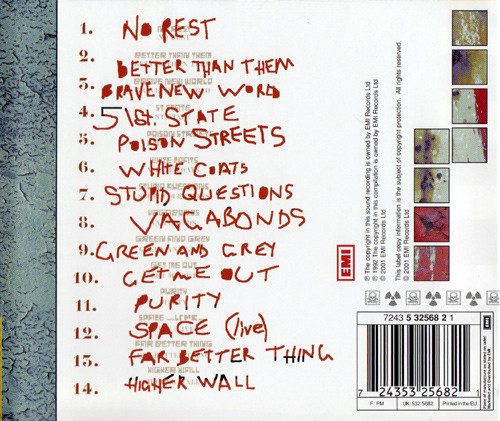 1. NO REST
2. BETTER THAN THEM
BETTER THAN THEM
3. BRAVE NEW WORD
BRAVE NEW WORLD
4. 51st. STATE
5. POISON STREETS
POISON STREETS
6. WHITE COATS
WHITE COATS
7. STUPID QUESTIONS
STUPID QUESTIONS
8. VAGABONDS
9. GREEN AND GREY
GREEN AND GREY
10. GET ME OUT
GET ME OUT
11. PURITY
PURITY
12. SPACE (live)
SPACE ...LIVE...
13. FAR BETTER THING
FAR BETTER THING
14. HIGHER WALL
HIGHER WALL
EMI
℗ The copyright in this sound recording is owned by EMI Records Ltd
℗ 1992 The copyright in this compilation is owned by EMI Records Ltd
© 2001 EMI Records Ltd
This label copy information is the subject of copyright protection. All rights reserved.
© 2001 EMI Records Ltd
7243 5 32568 2 1
7 24353 25682
F: PM
UK: 532 5682
Printed in the EU
EMI